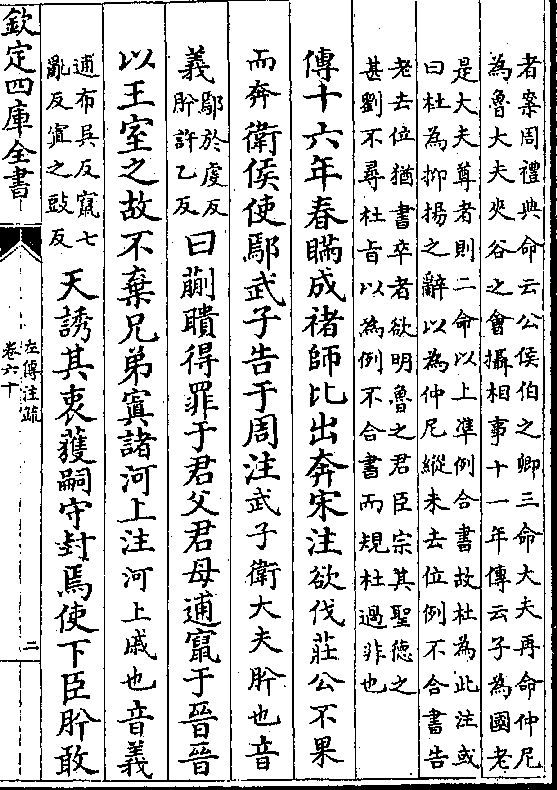 者案周禮典命云公侯伯之卿三命大夫再命仲尼
為魯大夫夾谷之會攝相事十一年傳云子為國老
是大夫尊者則二命以上準例合書故杜為此注或
曰杜為抑揚之辭以為仲尼縱未去位例不合書告
老去位猶書卒者欲明魯之君臣宗其聖德之
甚劉不尋杜旨以為例不合書而規杜過非也
傳十六年春瞞成褚師比出奔宋注欲伐莊公不果
而奔衛侯使鄢武子告于周注武子衛大夫肸也音
義鄢於虔反
肸許乙反
曰蒯聵得罪于君父君母逋竄于晉晉
以王室之故不棄兄弟寘諸河上注河上戚也音義
逋布吳反竄七
亂反寘之豉反
天誘其衷獲嗣守封焉使下臣肸敢
欽定四庫全書
左傳注疏
卷六十
二